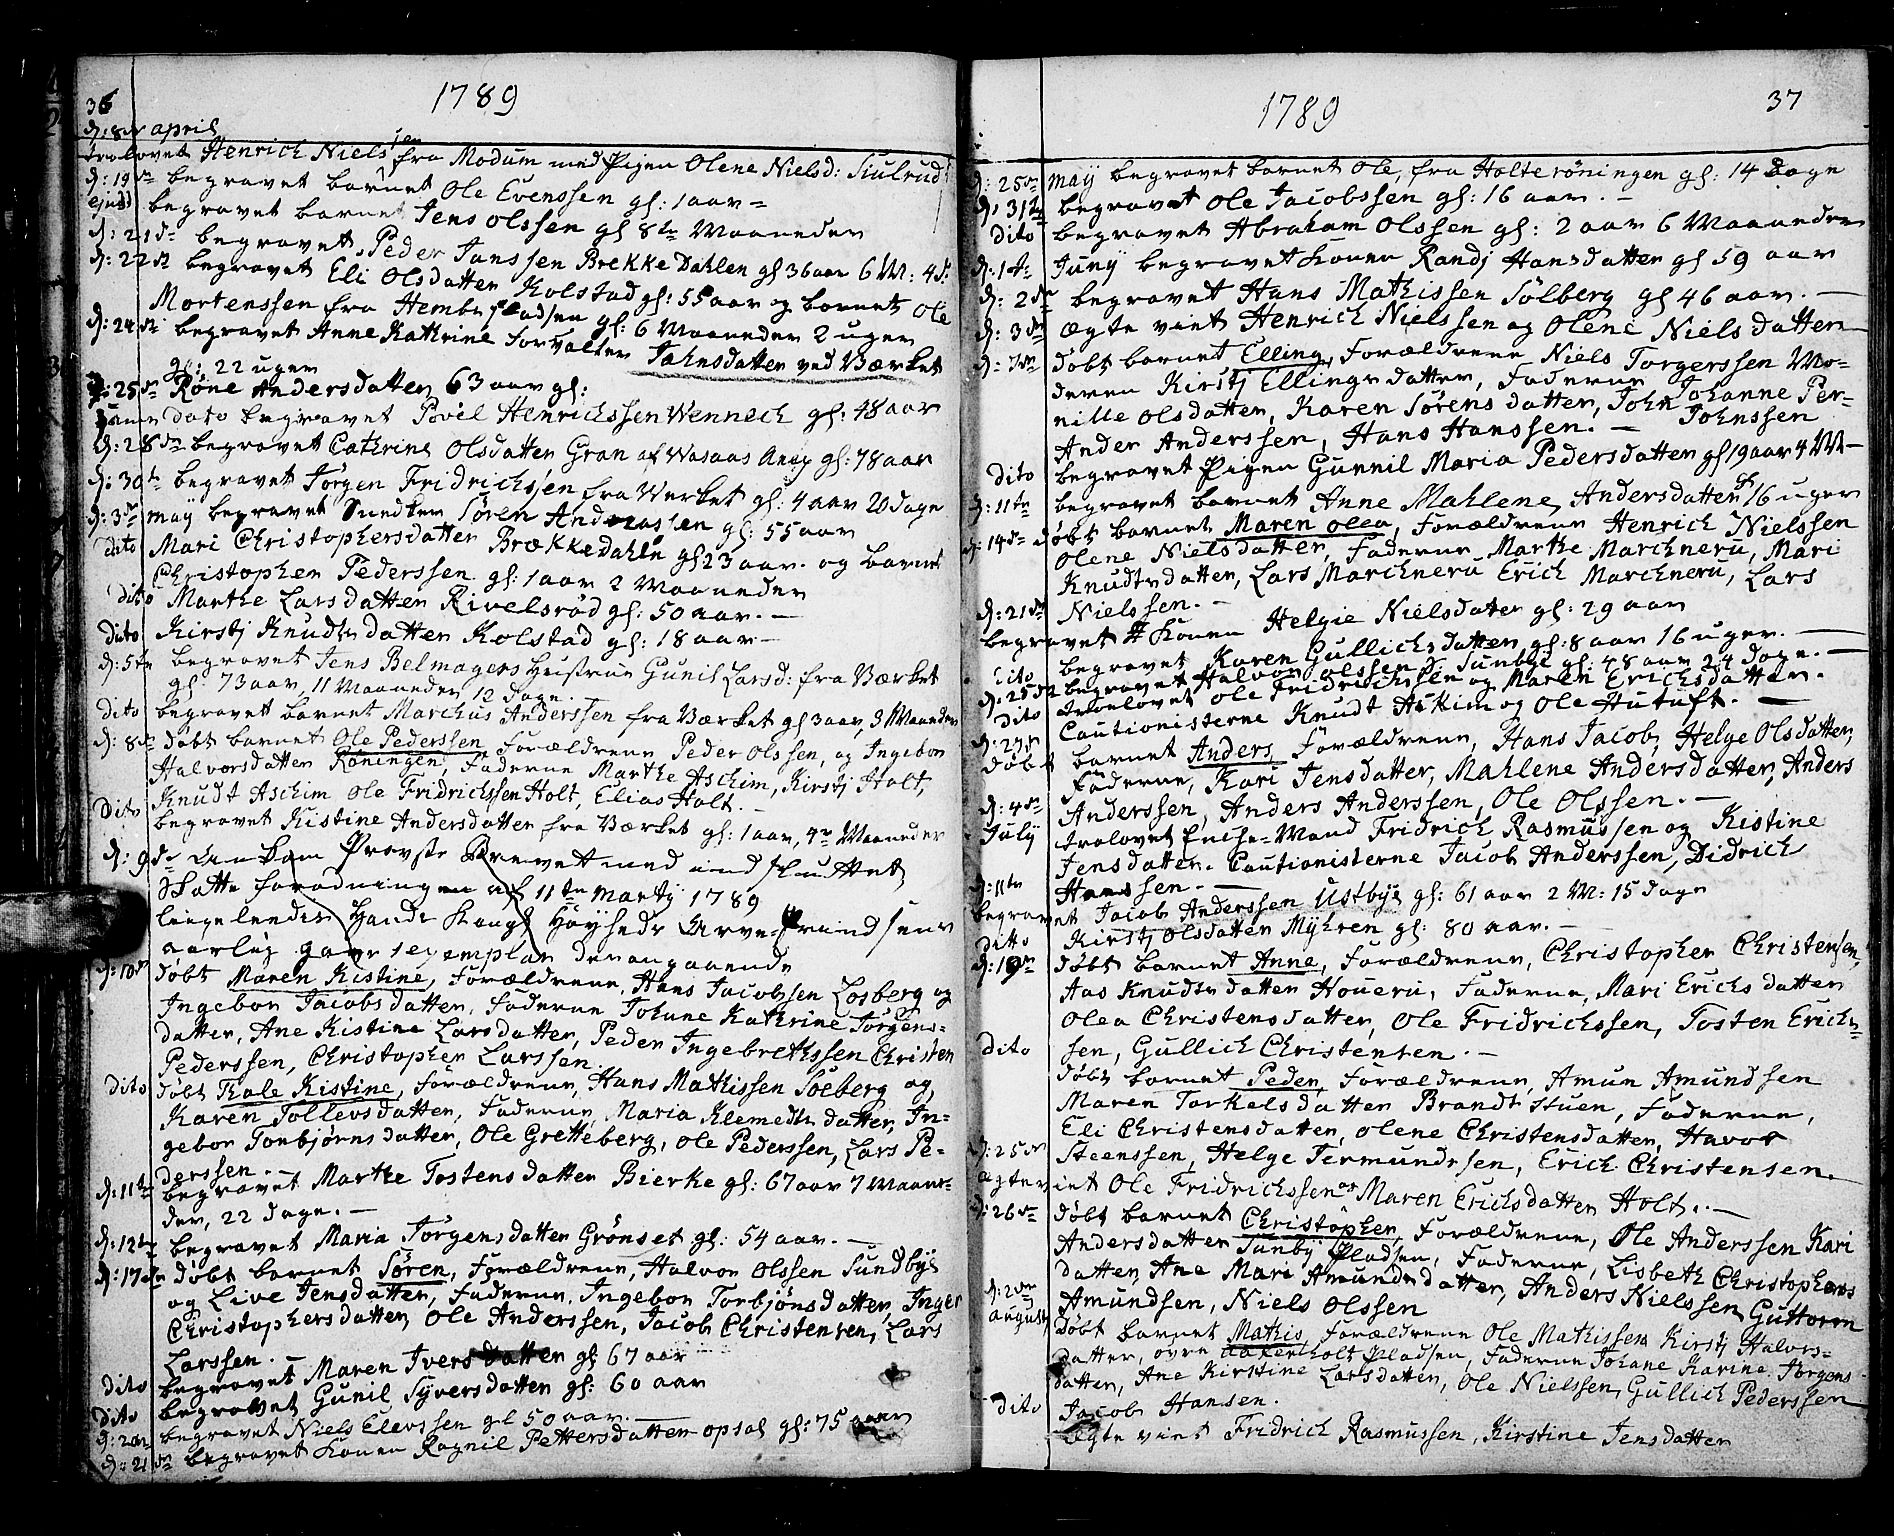 36
1789
d: 8de april
trolovet Henrich Nielssen fra Modum med Pigen Olene Nielsd: Siulrud
d: 19de begravet barnet Ole Evenssen gl: 1 aar
ejusd begravet barnet Jens Olssen gl 8te Maaneder
d: 21de begravet Peder Janssen Brekke Dahlen gl 36 aar 6 M: 4 d:
d: 22de begravet Eli Olsdatter Kolstad gl: 55 aar og barnet Ole
Mortenssen fra Hembs pladsen gl: 6 Maaneder 2 uger
d: 24de begravet Anne Kathrine Forvalter Jahnsdatter ved Værket
gl: 22 uger
d: 25de Röne Andersdatter 63 aar gl:
samme dato begravet Povel Henrichssen Wennech gl: 48 aar
d: 28de begravet Catrine Olsdatter Gran af Wasaas Anex gl: 78 aar
d: 30te begravet Jørgen Fridrichsen fra Werket gl: 4 aar 20 dage
d: 3de may begravet Snedker Sören Andreassen gl: 55 aar
dito Mari Christophersdatter Brækkedahln gl 23 aar. og barnet
Christopher Pederssen gl: 1 aar 2 Maaneder
dito Marthe Larsdatter Rivelsröd gl: 50 aar. —
dito Kirstj Knudtsdatter Kolstad gl: 18 aar —
d: 5te begravet Jens Belmagers Hustrue Gunil Larsd: fra Værket
gl: 73 aar, 11 Maaneder 12 dage. —
dito begravet barnet Marchus Anderssen fra Værket gl 3 aar, 3 Maaneder
d: 8de döbt barnet Ole Pederssen Forældrene Peder Olssen, og Ingebor
Halvorsdatter Röningen, Faderne Marthe Aschim, Kirstj Holt,
Knudt Aschim Ole Fridrichssen Holt, Elias Holt. —
dito begravet Kistine Andersdatter fra Værket gl: 1 aar, 4re Maaneder
d: 9de Ankom Provste Brevet med indsluttet
Skatte forordningen af 11te Martij 1789
leigelendes Hands Kongl Høyheds Arve Prindsens
aarlig gave 1 exemplar derangaaende
d: 10de döbt Maren Kistine, Forældrene, Hans Jacobssen Losberg og
Ingebor Jacobsdatter, Faderne Johane Kathrine Jörgens=
datter, Ane Kistine Larsdatter, Peder Ingebrethssen Christen
Pederssen, Christopher Larssen.
dito döbt Thale Kistine, Forældrene, Hans Mathissen Soeberg og
Karen Tollevsdatter, Faderne, Maria Klemedtsdatter, In=
gebor Torbjörnsdatter, Ole Gretteberg, Ole Pederssen, Lars Pe=
derssen. —
d: 11te begravet Marthe Tostensdatter Bierke gl: 67 aar 7 Maane=
der, 22 dage. —
d: 12te begravet Maria Jörgensdatter Grönset gl: 54 aar. —
d: 17de döbt barnet Sören, Forældrene, Halvor Olssen Sundbye
og Live Jensdatter, Faderne, Ingebor Torbjönsdatter, Inger
Christophersdatter, Ole Anderssen, Jacob Christensen, Lars
Larssen. —
dito begravet Maren Iversdatter gl 67 aar
dito begravet Gunil Syversdatter gl: 60 aar
d: 20de begravet Niels Elevssen gl 50 aar. —
d: 21de begravet konen Ragnil Pettersdatter opsal gl: 75 aar
1789
37
d: 25de may begravet barnet Ole, fra Holteröningen gl: 14 dage
d: 31te begravet Ole Jacobssen gl: 16 aar. —
dito begravet Abraham Olssen gl: 2 aar 6 Maaneder
d: 1te Junij begravet konen Randj Hansdatter gl 59 aar
d: 2de begravet Hans Mathissen Sölberg gl 46 aar. —
d: 3de ægte viet Henrich Nielssen og Olene Nielsdatter
d: 7de döbt barnet Elling, Forældrene Niels Torgerssen Mo=
deren Kirstj Ellingsdatter, Faderne Johanne Per=
nille Olsdatter, Karen Sörensdatter, John Johnssen
Ander Anderssen, Hans Hanssen. —
dito begravet Pigen Gunnil Maria Pedersdatter gl 19 aar 4 M —
d: 11te begravet barnet Anne Mahlene Andersdatter gl 16 uger
d: 14de döbt barnet Maren Olea, Forældrene Henrich Nielssen
Olene Nielsdatter, Faderne Marthe Marchneru, Mari
Knudtsdatter, Lars Marchneru Erich Marchneru, Lars
Nielssen. —
d: 21de begravet konen Helgie Nielsdater gl: 29 aar
begravet Karen Gullichsdatter gl: 8 aar 16 uger. —
dito begravet Halvor Olssen S: Sunbye gl: 48 aar 24 dage. —
d: 25de troelovet Ole Fridrichssen og Maren Erichsdatter.
dito Cautionisterne Knudt Askim og Ole Hutuft. —
d: 27de döbt barnet Anders, Forældrene, Hans Jacob, Helge Olsdatter,
Faderne, Kari Jensdatter, Mahlene Andersdatter, Anders
Anderssen, Anders Anderssen, Ole Olssen. —
d: 4de July trolovet Enche=Mand Fridrich Rasmussen og Kistine
Jensdatter. Cautionisterne Jacob Anderssen, Didrich
Hanssen. —
d: 11te begravet Jacob Anderssen Ustbye gl: 61 aar 2 M: 15 dage
ditto Kirstj Olsdatter Myhren gl: 80 aar. —
d: 19de döbt barnet Anne, Forældrene, Christopher Christensen,
Aas Knudtsdatter Houeru, Faderne, Mari Erichsdatter
Olea Christensdatter, Ole Fridrichssen, Tosten Erichs=
sen, Gullich Christensen. —
dito döbt barnet Peder, Forældrene, Amun Amundsen
Maren Torkelsdatter Brandtstuen, Faderne,
Eli Christensdatter, Olene Christensdatter, Havor
Steenssen, Helge Termundssen, Erich Christensen.
d: 25de ægteviet Ole Fridrichssen og Maren Erichsdatter Holt. —
d: 26de döbt barnet Christopher, Forældrene, Ole Anderssen Kari
Andersdatter Sunby Pladsen, Faderne, Lisbeth Christophers
datter, Ane Mari Amundsdatter, Anders Nielssen, Guttorm
Amundsen, Niels Olssen
d: 2den augusti döbt barnet Mathis, Forældrene Ole Mathissen Kirstj Halvors=
datter, ovre Aakerholt Pladsen, Faderne Johane Karine Jörgens
datter, Ane Kirstine Larsdatter, Ole Nielssen, Gullich Pederssen
Jacob Hansen.
dito Ægte viet Fridrich Rasmussen, Kirstine Jensdatter